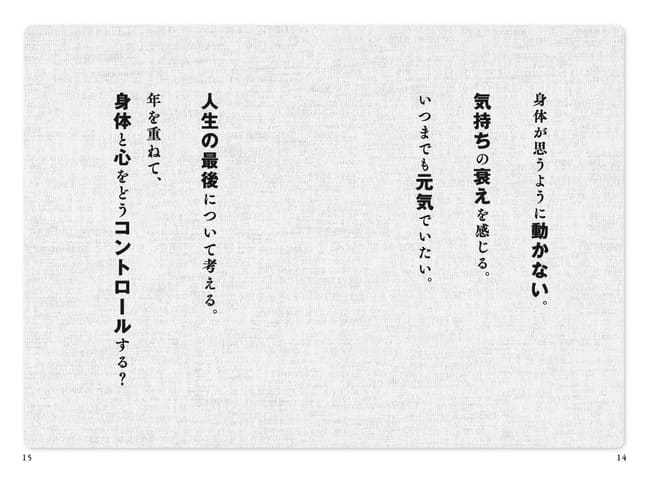 身体が思うように動かない。
気持ちの衰えを感じる。
いつまでも元気でいたい。
人生の最後について考える。
年を重ねて、
身体と心をどうコントロールする？
15
14